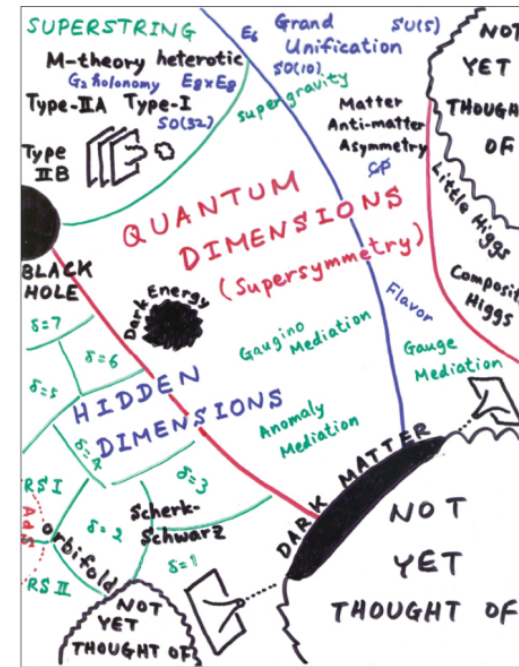 SUPERSTRING
M-theory heterotic
G₂ holonomy E₈xE₈
Type-IIA Type-I
SO(32)
Type
IIB
E₆ Grand
Unification
SU(5)
SO(10)
supergravity
Matter
Anti-matter
Asymmetry
CP
NOT
YET
THOUGHT
OF
Little Higgs
Composit
Higgs
QUANTUM
DIMENSIONS
(Supersymmetry)
BLACK
HOLE
Dark Energy
Flavor
Gaugino
Mediation
Gauge
Mediation
Anomaly
Mediation
δ=7
δ=6
δ=5
HIDDEN
DIMENSIONS
δ=4
δ=3
RS I
AdS
orbifold
δ=2
Scherk-
Schwarz
RS II
δ=1
DARK MATTER
NOT
YET
THOUGHT OF
NOT
YET
THOUGHT OF